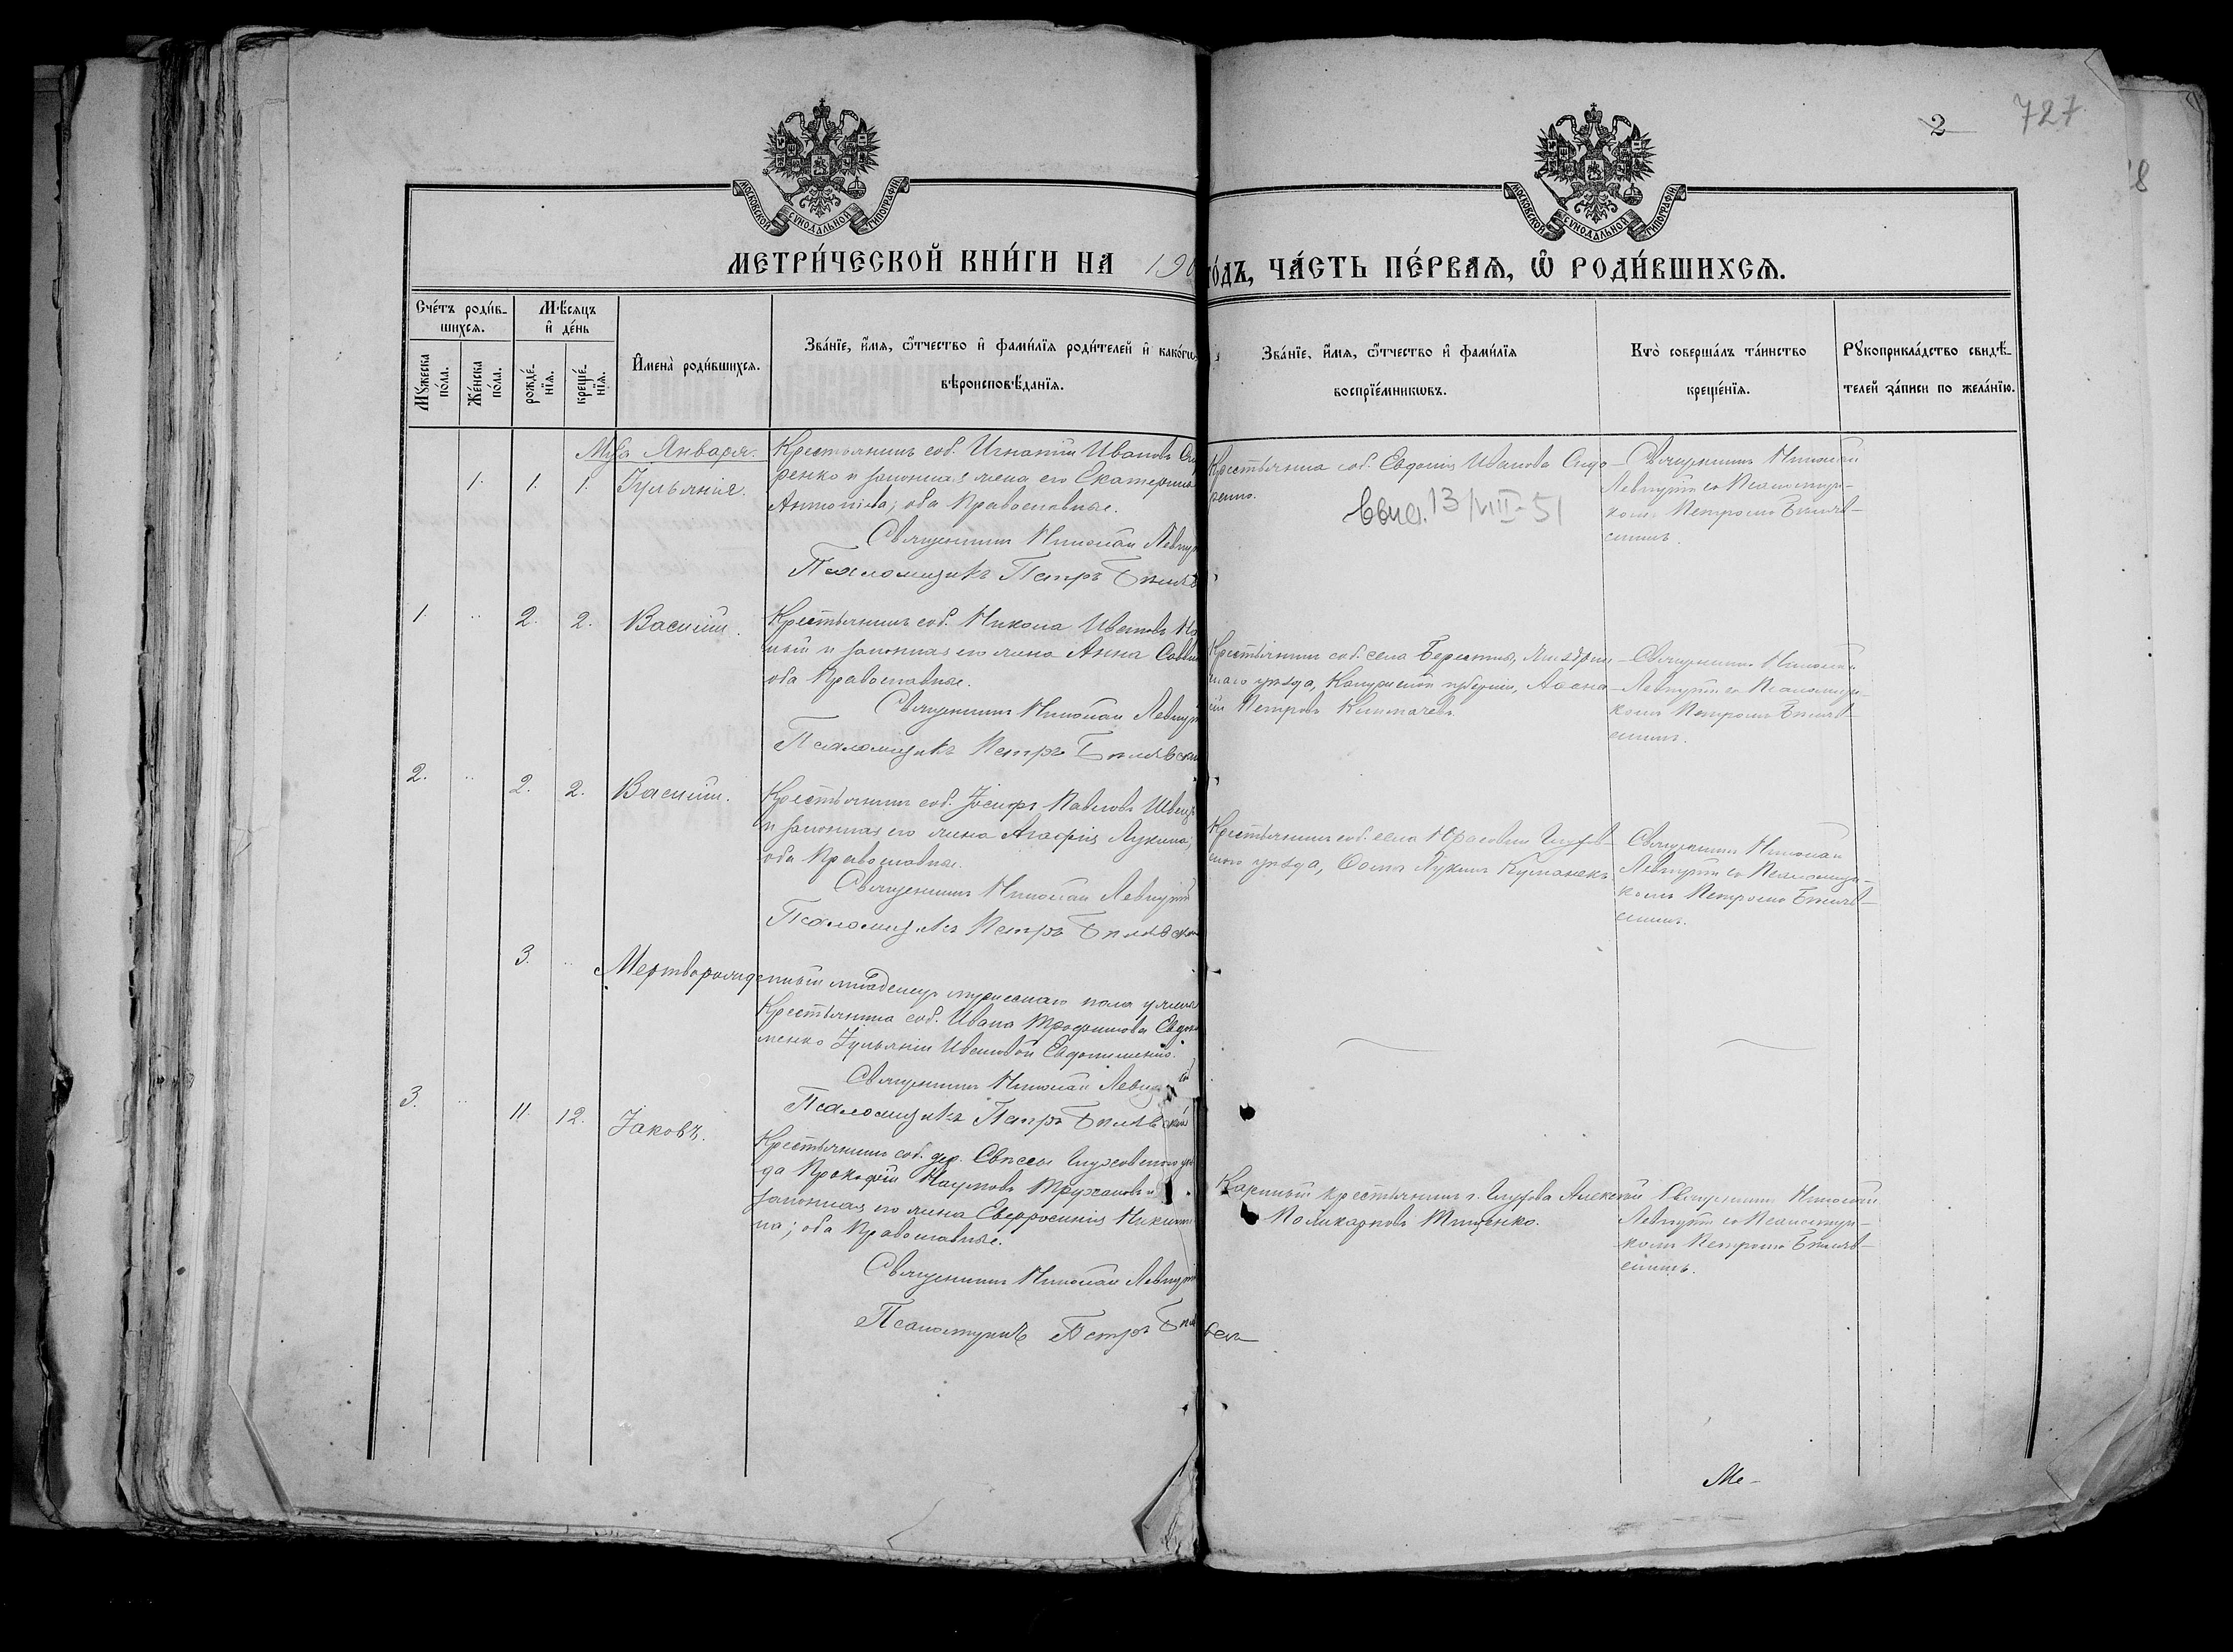 2 727
18
МОСКОВСКОЙ СУНОДАЛЬНОЙ ТИПОГРАФІИ
МОСКОВСКОЙ СУНОДАЛЬНОЙ ТИПОГРАФІИ
МЕТРИ́ЧЕСКОЙ КНИ́ГИ НА 190
ГО́ДЪ, ЧА́СТЬ ПЕ́РВАѦ, Ѡ҆ РОДИ́ВШИХСѦ.
Сче́тъ роди́в-
шихсѧ.
Мꙋ́жеска по́ла.
Же́нска по́ла.
Мѣ́сѧцъ
и҆ де́нь
рожде́-
нїѧ.
креще́-
нїѧ.
И҆мена̀ роди́вшихсѧ.
Зва́нїе, и҆́мѧ, ѻ҆́тчество и҆ фами́лїѧ роди́телей и҆ како́гѡ
вѣроисповѣ́данїѧ.
Зва́нїе, и҆́мѧ, ѻ҆́тчество и҆ фами́лїѧ
воспрїе́мникѡвъ.
Кто̀ соверша́лъ та́инство
креще́нїѧ.
Рꙋкоприкла́дство свидѣ́-
телей за́писи по жела́нїю.
Мца Января.
1. 1. 1. Іульянія.
Крестьянинъ соб. Игнатій Ивановъ Си
ренко и законная жена его Екатерина
Антонова; оба Православные.
Священникъ Николай Левиц
Псаломщикъ Петръ Биляв
Крестьянина соб. Евдокія Иванова Сидо-
ренко.
13/VIII-51
Священникъ Николай
Левицкій со Псаломщи-
комъ Петромъ Биляв-
скимъ.
1. .. 2. 2. Василій.
Крестьянинъ соб. Никола Ивановъ
ный и законная его жена Анна Савви
оба Православные.
Священникъ Николай Левиц
Псаломщикъ Петръ Билявскі
Крестьянинъ соб. села
скаго уѣзда, Калужской губерніи, Аѳана-
сій Петровъ
Священникъ Николай
Левицкій со Псаломщи-
комъ Петромъ Биляв-
скимъ.
2. .. 2. 2. Василій.
Крестьянинъ соб. Іосифъ Павловъ Швець
и законная его жена Агафія Лукина;
оба Православные.
Священникъ Николай Левицкій
Псаломщикъ Петръ Билявскі
Крестьянинъ соб. села Глухов-
скаго уѣзда, Ѳома Лукинъ
Священникъ Николай
Левицкій со Псаломщи-
комъ Петромъ Биляв-
скимъ.
3. ..
Мертворожденный младенецъ мужескаго пола у жены
Крестьянина соб. Ивана Трофимова Евдоки
менко Іульяніи Ивановой Евдокименко.
Священникъ Николай Левицкій
Псаломщикъ Петръ Билявскій
3. .. 11. 12. Іаковъ.
Крестьянинъ соб. дер. Свѣссы Глуховскаго уѣз
да Прокофій Наумовъ Трухановъ и
законная его жена Евфросинія Никити
на; оба Православные.
Священникъ Николай Левицкій
Псаломщикъ Петръ Биля
вск
Крестьянинъ г. Глухова Алексѣй
Поликарповъ Тищенко.
Священникъ Николай
Левицкій со Псаломщи-
комъ Петромъ Биляв-
скимъ.
Ме-